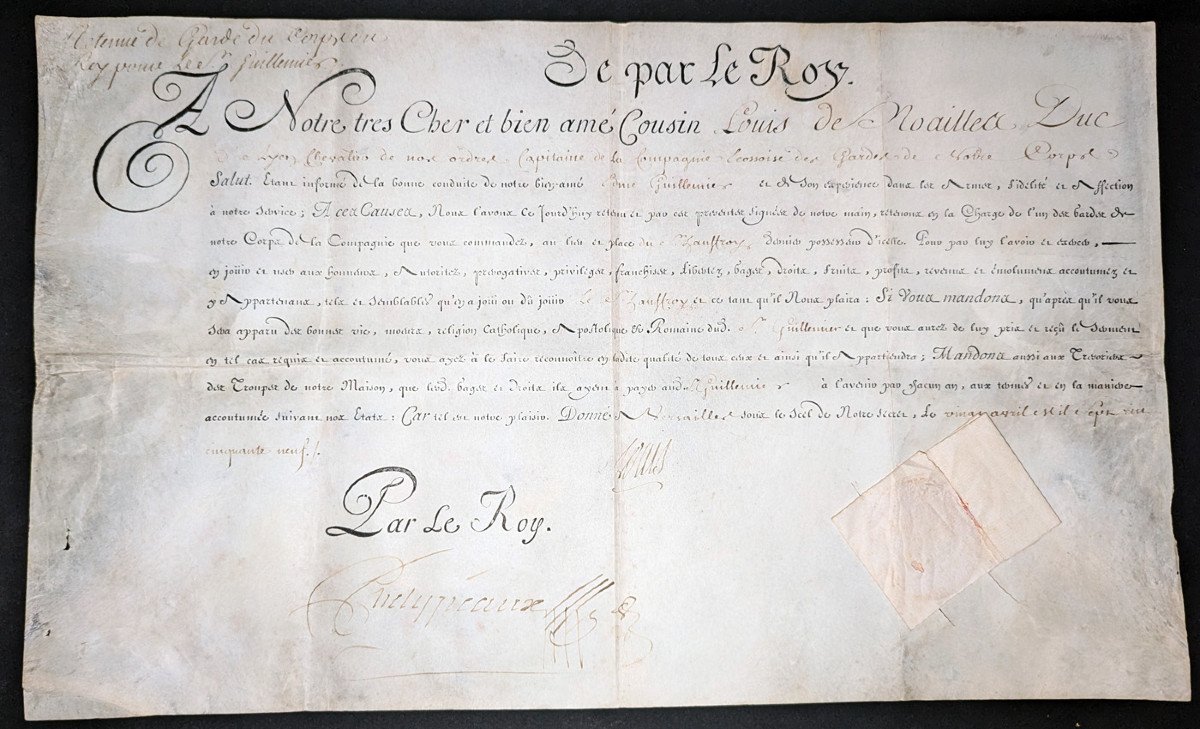 Retenue de Garde du Corps du
Roy pour le Sr. Guillemier
De par Le Roy.
A Notre tres Cher et bien amé Cousin Louis de Noailles Duc
d'Ayen Chevalier de nos ordres Capitaine de la Compagnie Ecossoise des Gardes de Notre Corps
Salut. Etant informé de la bonne conduite de notre bien amé Edme Guillemier et de son experience dans les Armes, fidelité et Affection
à notre service; A ces Causes, Nous l'avons ce Jourd'huy retenu et par ces presentes signées de notre main, retenons en la Charge de l'un des Gardes de
notre Corps de la Compagnie que vous commandez, au lieu et place du S. Chauffroy dernier possesseur d'icelle. Pour par luy l'avoir et exercer,
en jouir et user aux honneurs, Autoritez, prerogatives, privileges, franchises, libertez, gages, droits, fruits, profits, revenus et émolumens accoutumez et
y Appartenans, tels et semblables qu'en a joui ou dû jouir Le S. Chauffroy et ce tant qu'il Nous plaira: Si Vous mandons, qu'après qu'il vous
sera apparu des bonnes vie, moeurs, religion Catholique, Apostolique & Romaine dud. S. Guillemier et que vous aurez de luy pris et reçu le Serment
en tel cas requis et accoutumé, vous ayez à le faire reconnoître en ladite qualité de tous ceux et ainsi qu'il Appartiendra; Mandons aussi aux Tresoriers
des Troupes de notre Maison, que lesd. gages et droits ils ayent à payer aud. S. Guillemier à l'avenir par chacun an, aux termes et en la maniere
accoutumée suivant nos Etats: Car tel est notre plaisir. Donné à Versailles sous le Scel de Notre secret, Le avril Mil Sept cens
cinquante neuf./.
Louis
Par Le Roy.
Phelypeaux